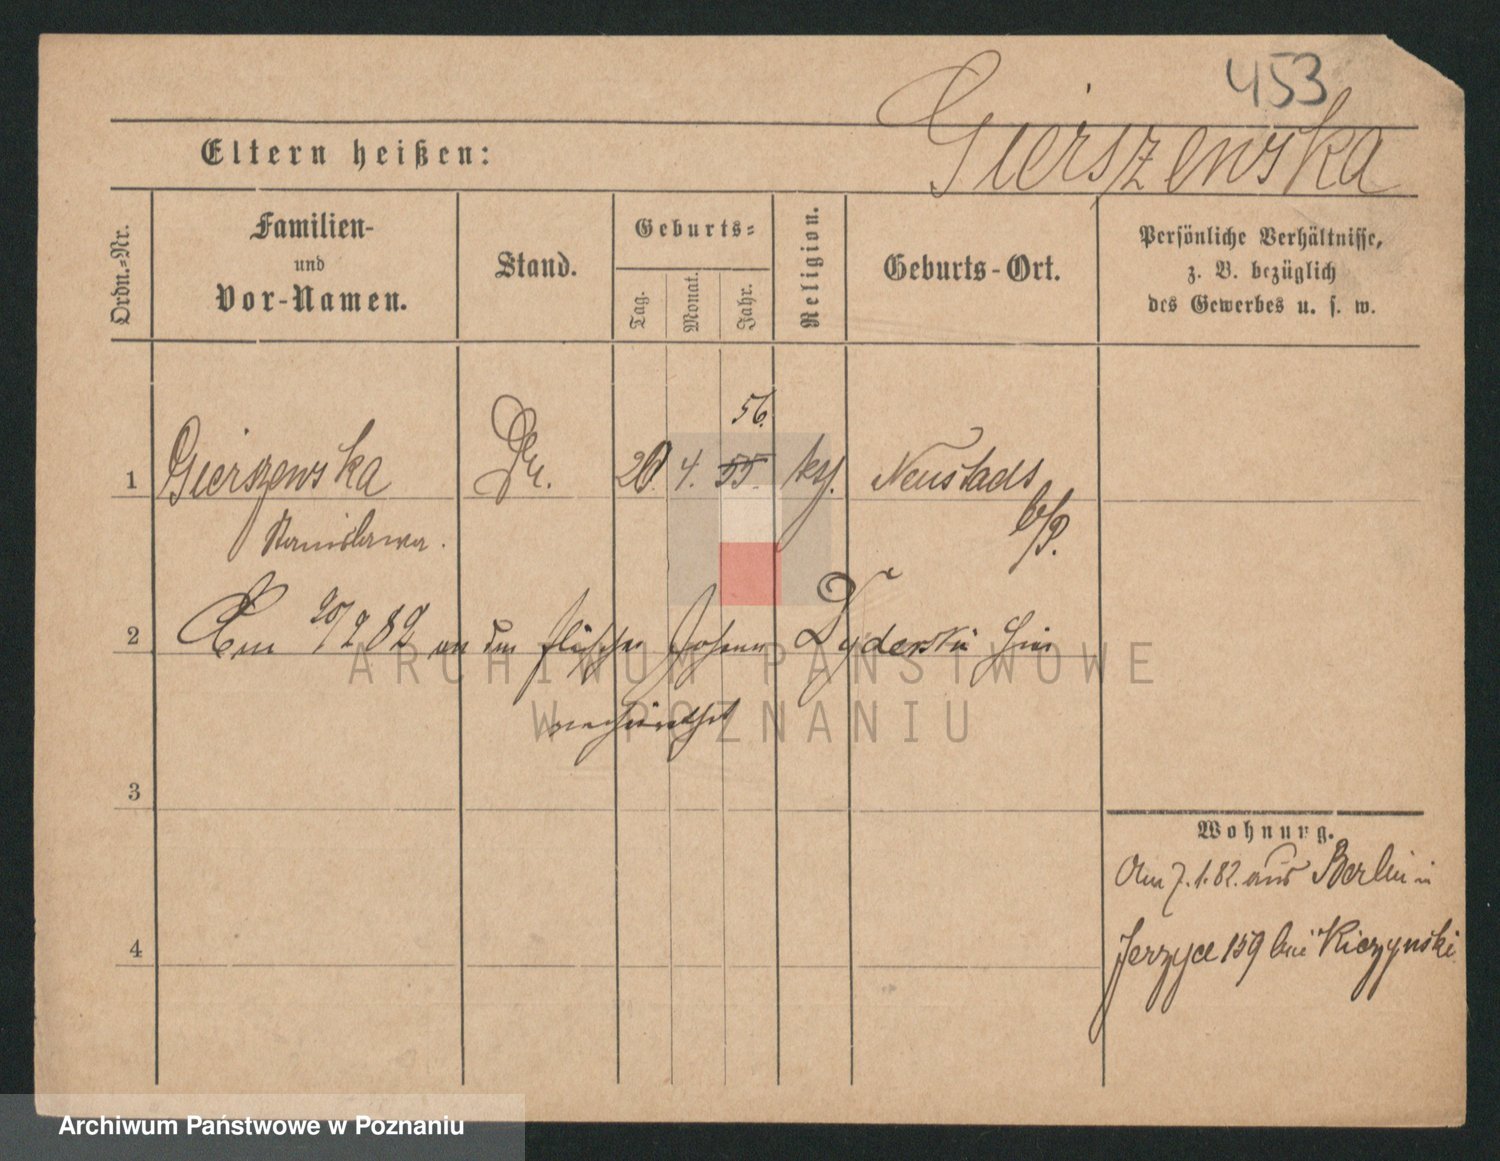 453
Gierszewska
Eltern heißen:
Ordn.-Nr.
Familien-
und
Vor-Namen.
Stand.
Geburts-
Tag.
Monat.
Jahr.
Religion.
Geburts-Ort.
Persönliche Verhältnisse,
z. B. bezüglich
des Gewerbes u. s. w.
56.
1 Gierszewska 20. 4. 55. Neustadt
Stanislawa. b/P.
2 Am 20/2 82 an den Fleischer Johann Dyderski hier
verheirathet
3
4
Wohnung.
Am 7.1.82. aus Berlin in
Jerzyce 159 bei Kiczynski
ARCHIWUM PAŃSTWOWE
W POZNANIU
Archiwum Państwowe w Poznaniu